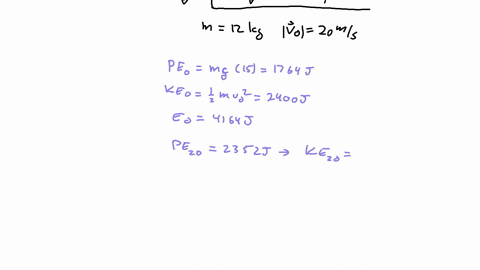 m = 12 kg |v⃗₀| = 20 m/s
PE₀ = mg (15) = 1764 J
KE₀ = ½ m v₀² = 2400 J
E₀ = 4164 J
PE₂₀ = 2352 J → KE₂₀ =